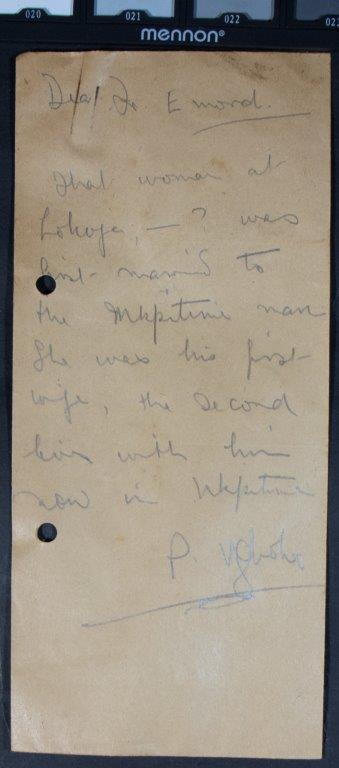 020 021 022 022
mennon®
Dear Dr Emord.
That woman at
Lokoja, — ? was
first married to
the Mkpitime man
She was his first
wife, the second
lives with him
now in Mkpitime
P.